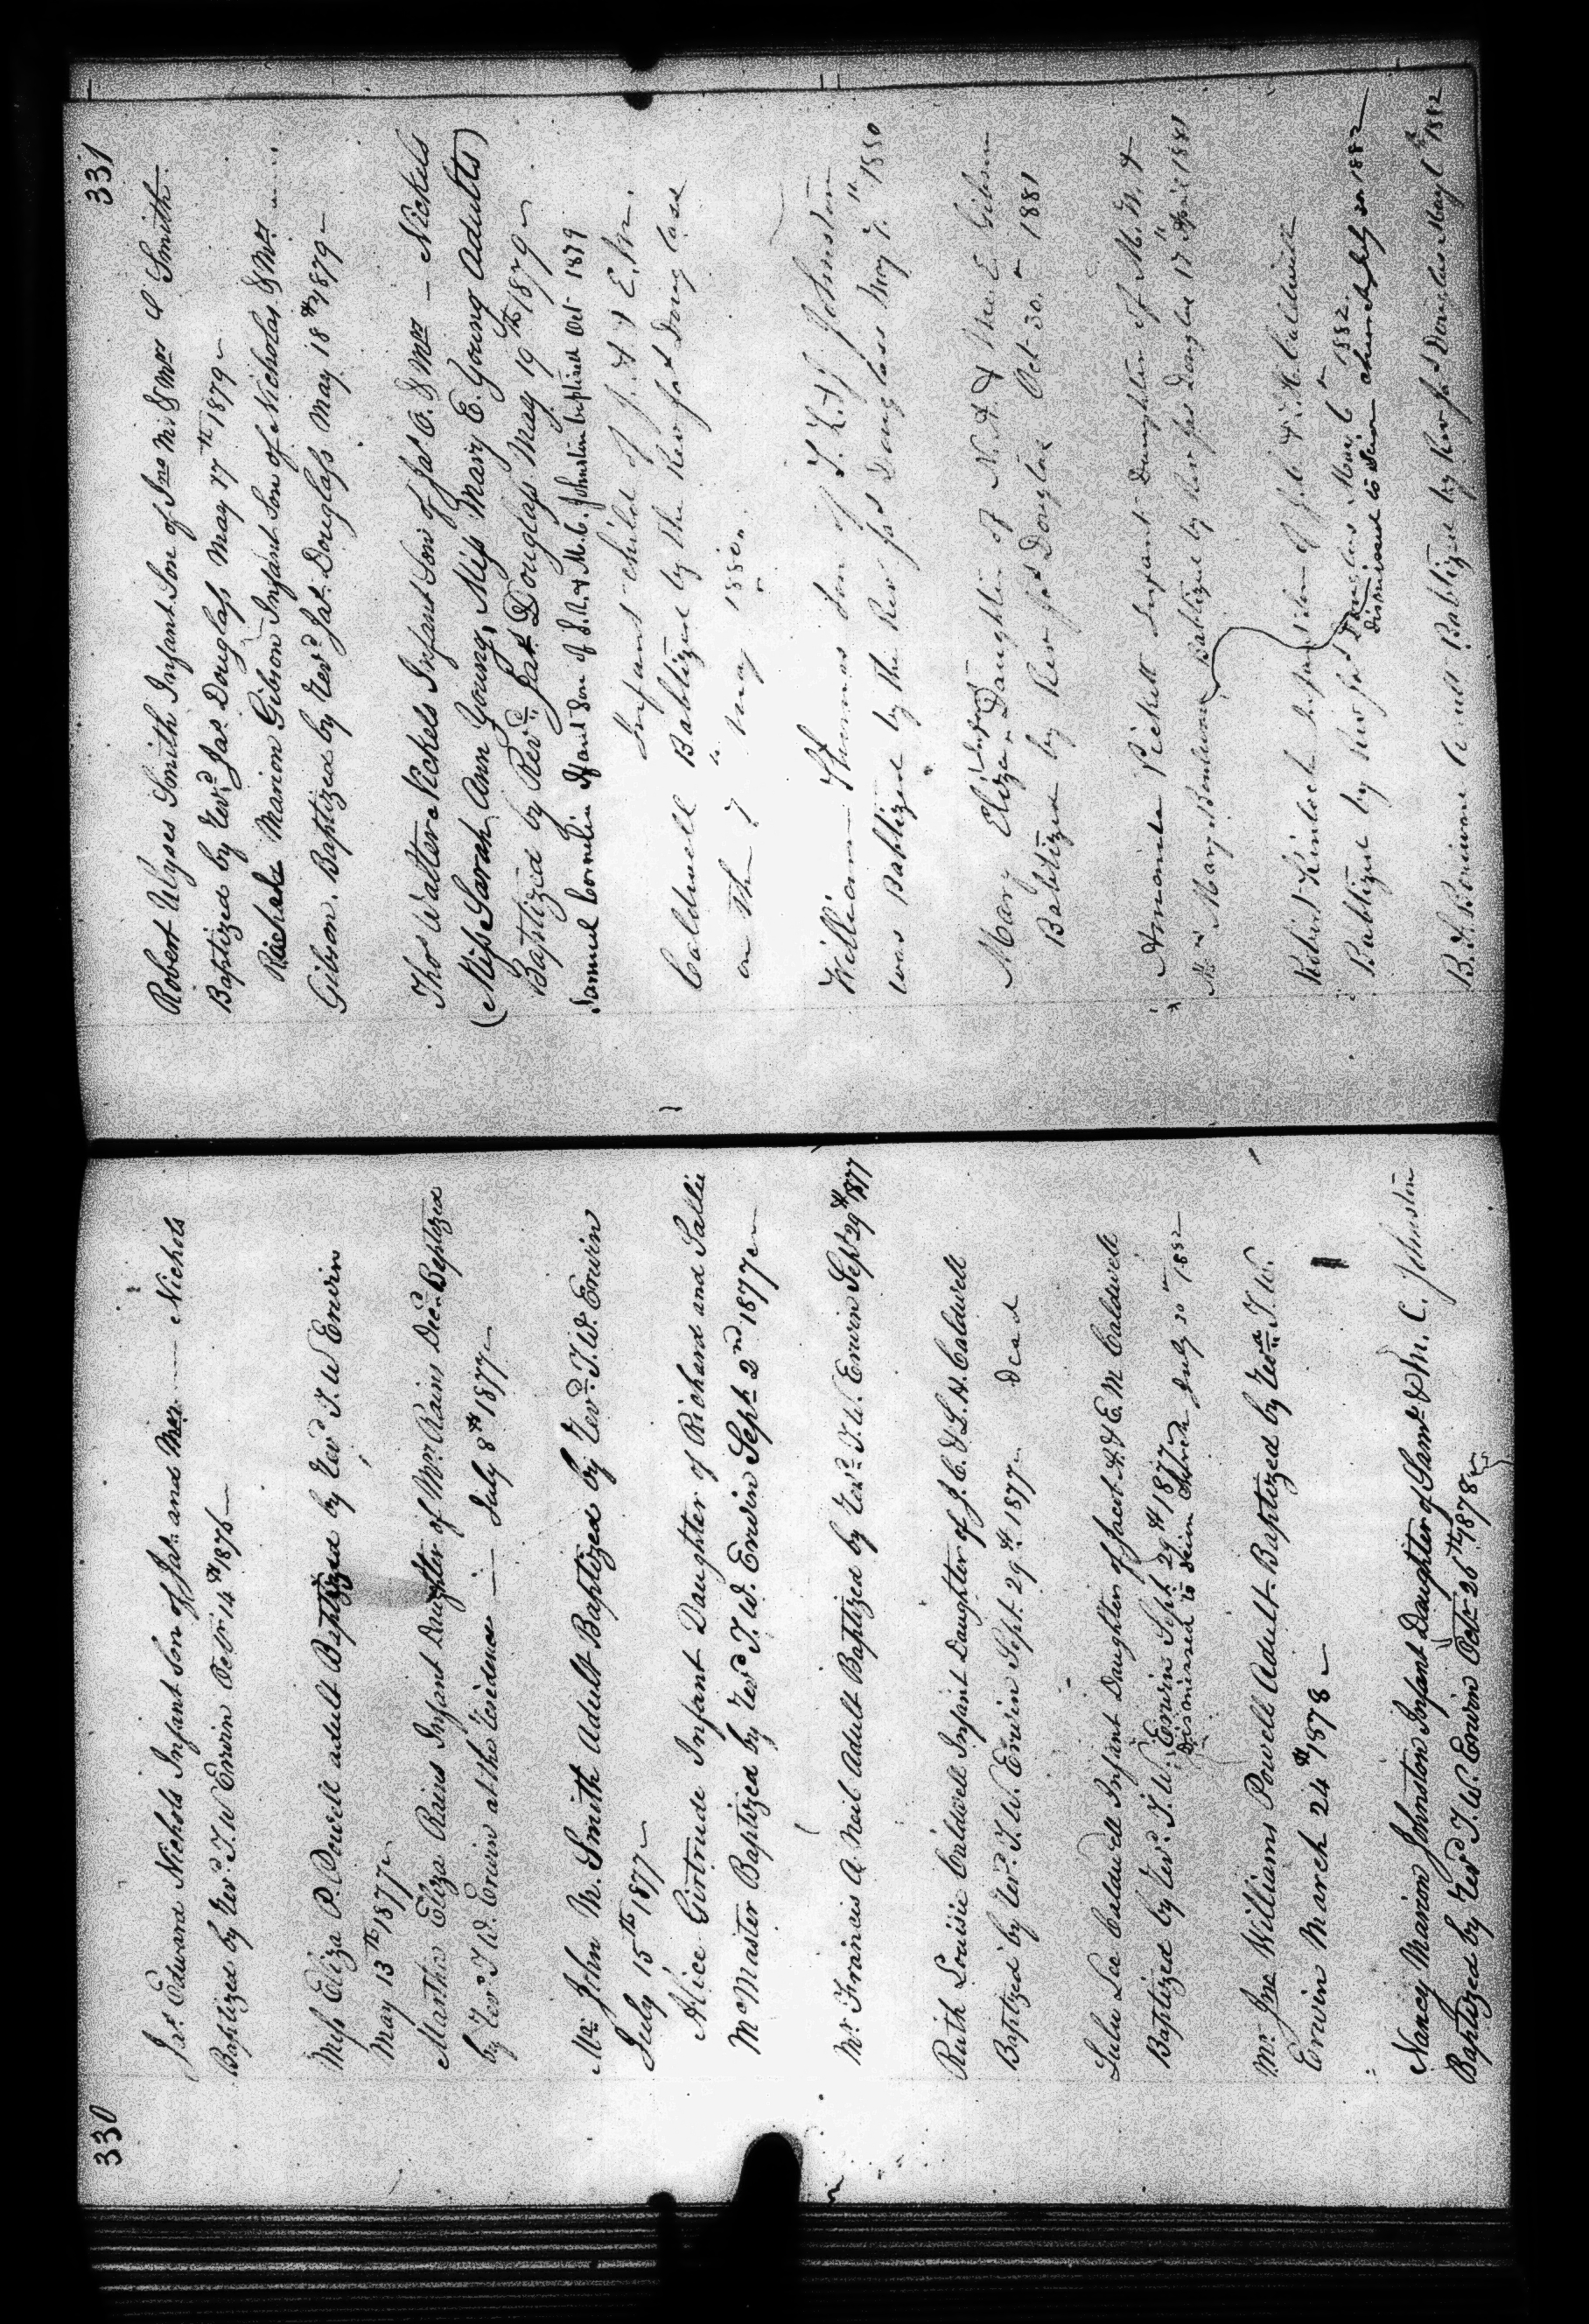 330
Jas. Edward Nichols Infant Son of Jas. and Mrs — Nichols
Baptized by Revd. T. W Erwin Feby 14th 1876
Miss Eliza P. Powell adult Baptized by Revd T. W Erwin
May 13th 1877
Martha Eliza Rains Infant Daughter of Mrs Rains Decd. Baptized
by Revd T. W. Erwin at the Residence — July 8th 1877
Mr. John M. Smith Adult Baptized by Revd. T. W. Erwin
July 15th 1877
Alice Girtrude Infant Daughter of Richard and Sallie
McMaster Baptized by Revd T. W. Erwin Sept 2nd 1877
Mr Francis A. Neil Adult Baptized by Revd. T. W. Erwin Sept 29th 1877
Ruth Louisie Caldwell Infant Daughter of J. C. & L. H. Caldwell
Baptized by Revd. T. W. Erwin Sept. 29th 1877 Dead
Lulu Lee Caldwell Infant Daughter of Jacob A. & E. M Caldwell
Baptized by Revd. T. W. Erwin Sept. 29th 1877
Dismissed to Scion Church July 30th 1882
Mr. Jno Williams Powell Adult Baptized by Revd. T. W.
Erwin March 24th 1878
Nancy Marion Johnston Infant Daughter of Saml. & M. C. Johnston
Baptized by Revd T. W. Erwin Oct. 26th 1878
331
Robert Ulyses Smith Infant Son of Jno M. & Mrs S Smith
Baptized by Revd. Jas. Douglass May 17th 1879
Richard Marion Gibson Infant Son of Nicholas & Mrs
Gibson. Baptized by Revd. Jas. Douglass May 18th 1879
Thos Walter Nickels Infant Son of Jas O. & Mrs — Nickels
(Miss Sarah Ann Young, Miss Mary E. Young Adults)
Baptized by Revd. Jas. Douglass May 19th 1879
Samuel Cornelius Infant Son of S. R. & M. C. Johnston baptised Oct 1879
Infant child of J. A & E. M.
Caldwell Babtized by the Rev Jas Douglass
on the 7" May 1880.
William Thomas Son of T. L. & J. Johnston
was Babtized by the Rev Jas Douglass May 7" 1880
Infant
Mary Eliza Daughter of N. A. & Mrs E Gibson
Babtized by Rev Jas Douglas Oct 30th 1881
Amanda Pickett Infant Daughter of M. W. &
Mrs Mary Bonlware Babtized by Rev Jas Douglas 17" April 1881
Robert Kinlock Infant Son of J. C. & L. H. Caldwell
Babtized by Rev Jas Douglas May 6th 1882
Dismissed to Scion church July 30 1882
B. F. Boniware Adult Babtized by Rev Jas Douglas May 6th 1882